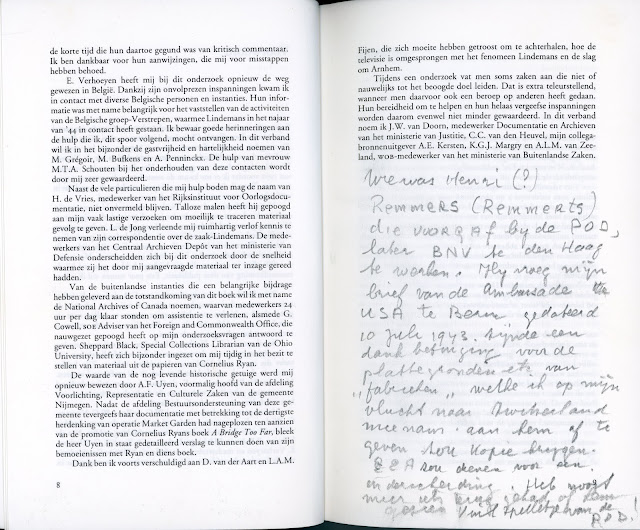 de korte tijd die hun daartoe gegund was van kritisch commentaar.
Ik ben dankbaar voor hun aanwijzingen, die mij voor misstappen
hebben behoed.
E. Verhoeyen heeft mij bij dit onderzoek opnieuw de weg
gewezen in België. Dankzij zijn onvolprezen inspanningen kwam ik
in contact met diverse Belgische personen en instanties. Hun infor-
matie was met name belangrijk voor het vaststellen van de activiteiten
van de Belgische groep-Verstrepen, waarmee Lindemans in het najaar
van '44 in contact heeft gestaan. Ik bewaar goede herinneringen aan
de hulp die ik, dit spoor volgend, mocht ontvangen. In dit verband
wil ik in het bijzonder de gastvrijheid en hartelijkheid noemen van
M. Grégoir, M. Bufkens en A. Penninckx. De hulp van mevrouw
M.T.A. Schouten bij het onderhouden van deze contacten wordt
door mij zeer gewaardeerd.
Naast de vele particulieren die mij hulp boden mag de naam van
H. de Vries, medewerker van het Rijksinstituut voor Oorlogsdocu-
mentatie, niet onvermeld blijven. Talloze malen heeft hij gepoogd
aan mijn vaak lastige verzoeken om moeilijk te traceren materiaal
gevolg te geven. L. de Jong verleende mij ruimhartig verlof kennis te
nemen van zijn correspondentie over de zaak-Lindemans. De mede-
werkers van het Centraal Archieven Depôt van het ministerie van
Defensie onderscheidden zich bij dit onderzoek door de snelheid
waarmee zij het door mij aangevraagde materiaal ter inzage gereed
hadden.
Van de buitenlandse instanties die een belangrijke bijdrage
hebben geleverd aan de totstandkoming van dit boek wil ik met name
de National Archives of Canada noemen, waarvan medewerkers 24
uur per dag klaar stonden om assistentie te verlenen, alsmede G.
Cowell, SOE Adviser van het Foreign and Commonwealth Office, die
nauwgezet gepoogd heeft op mijn onderzoeksvragen antwoord te
geven. Sheppard Black, Special Collections Librarian van de Ohio
University, heeft zich bijzonder ingezet om mij tijdig in het bezit te
stellen van materiaal uit de papieren van Cornelius Ryan.
De waarde van de nog levende historische getuige werd mij
opnieuw bewezen door A.F. Uyen, voormalig hoofd van de afdeling
Voorlichting, Representatie en Culturele Zaken van de gemeente
Nijmegen. Nadat de afdeling Bestuursondersteuning van deze ge-
meente tevergeefs haar documentatie met betrekking tot de dertigste
herdenking van operatie Market Garden had nageplozen ten aanzien
van de promotie van Cornelius Ryans boek A Bridge Too Far, bleek
de heer Uyen in staat gedetailleerd verslag te kunnen doen van zijn
bemoeienissen met Ryan en diens boek.
Dank ben ik voorts verschuldigd aan D. van der Aart en L.A.M.
8
Fijen, die zich moeite hebben getroost om te achterhalen, hoe de
televisie is omgesprongen met het fenomeen Lindemans en de slag
om Arnhem.
Tijdens een onderzoek vat men soms zaken aan die niet of
nauwelijks tot het beoogde doel leiden. Dat is extra teleurstellend,
wanneer men daarvoor ook een beroep op anderen heeft gedaan.
Hun bereidheid om te helpen en hun helaas vergeefse inspanningen
worden daarom evenwel niet minder gewaardeerd. In dit verband
noem ik J.W. van Doorn, medewerker Documentatie en Archieven
van het ministerie van Justitie, C.C. van den Heuvel, mijn collega-
bronnenuitgever A.E. Kersten, K.G.J. Margry en A.L.M. van Zee-
land, WOB-medewerker van het ministerie van Buitenlandse Zaken.
Wie was Henri (?)
Remmers (Remmerts)
die voorgaf by de POD,
later BNV te den Haag
te werken. Hy vroeg mijn
brief van de Ambassade
USA te Bern gedateerd
10 juli 1943. zijnde een
dank betuiging voor de
plattegronden etc van
"fabrieken" welke ik op mijn
vlucht naar Zwitserland
meenam. aan hem af te
geven zou kopie krygen.
zou dienen voor een
onderscheiding. Heb nooit
meer iets
gezien Vuil spelletje van de
POD.